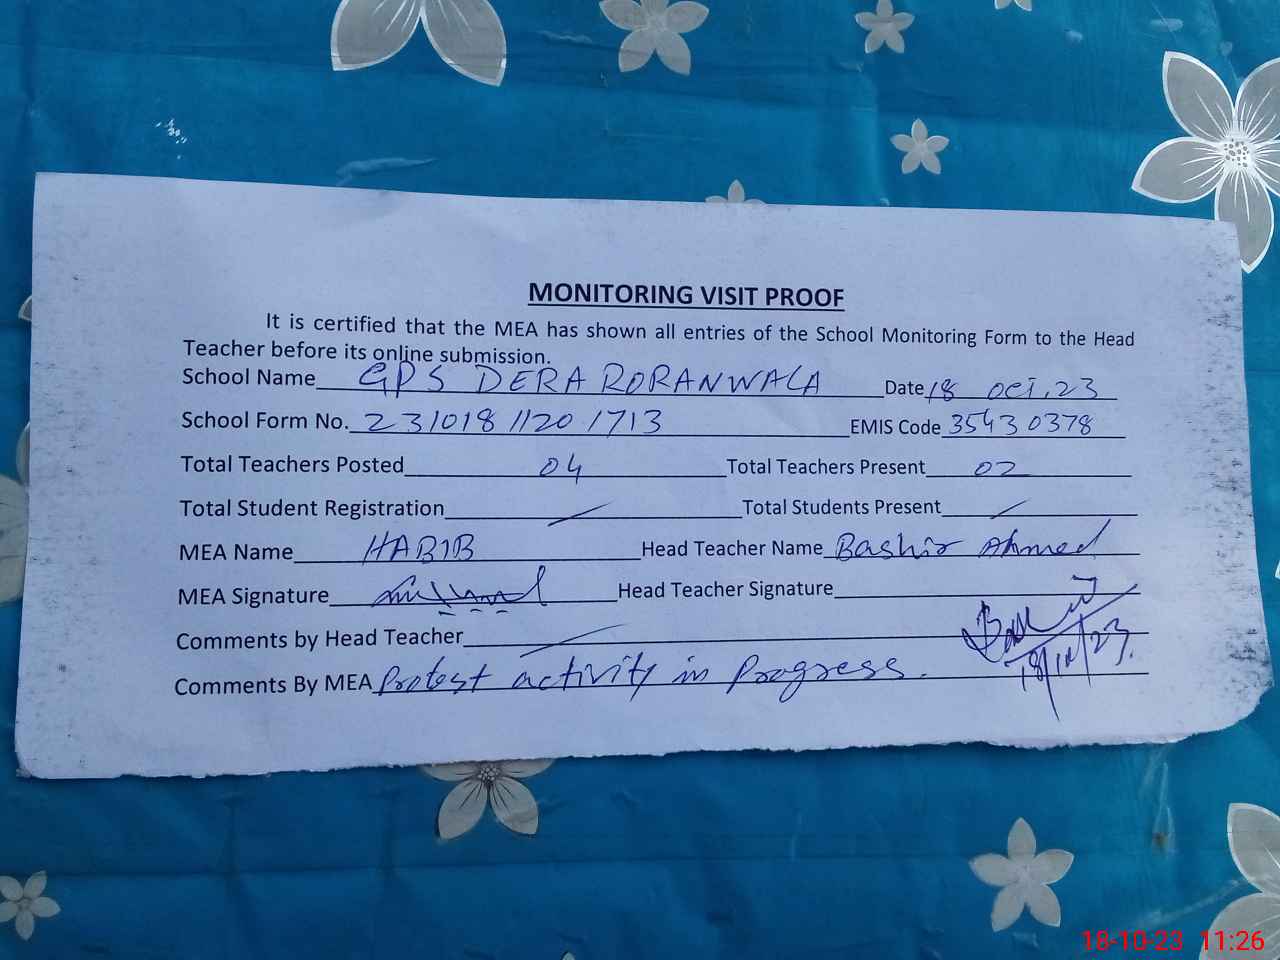 MONITORING VISIT PROOF
It is certified that the MEA has shown all entries of the School Monitoring Form to the Head
Teacher before its online submission.
School Name GPS DERA RORANWALA Date 18 OCT, 23
School Form No. 231018 1120 1713 EMIS Code 35430378
Total Teachers Posted 04 Total Teachers Present 02
Total Student Registration Total Students Present
MEA Name HABIB Head Teacher Name Bashir Ahmed
MEA Signature Head Teacher Signature
Comments by Head Teacher
18/10/23.
Comments By MEA Protest activity in Progress.
18-10-23 11:26